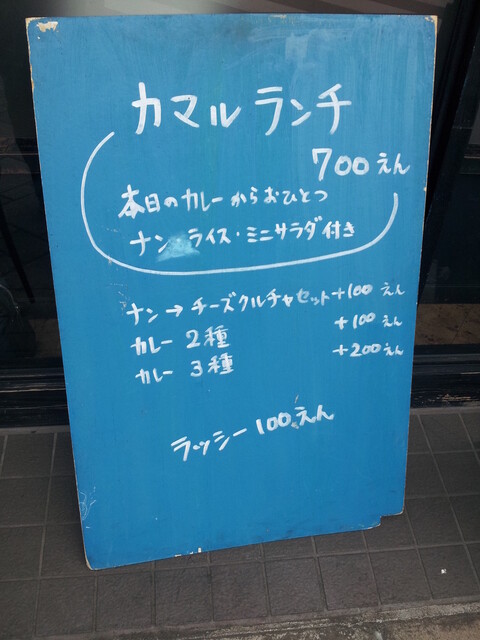 カマルランチ
700えん
本日のカレーからおひとつ
ナン ライス・ミニサラダ付き
ナン→チーズクルチャセット+100えん
カレー2種 +100えん
カレー3種 +200えん
ラッシー100えん